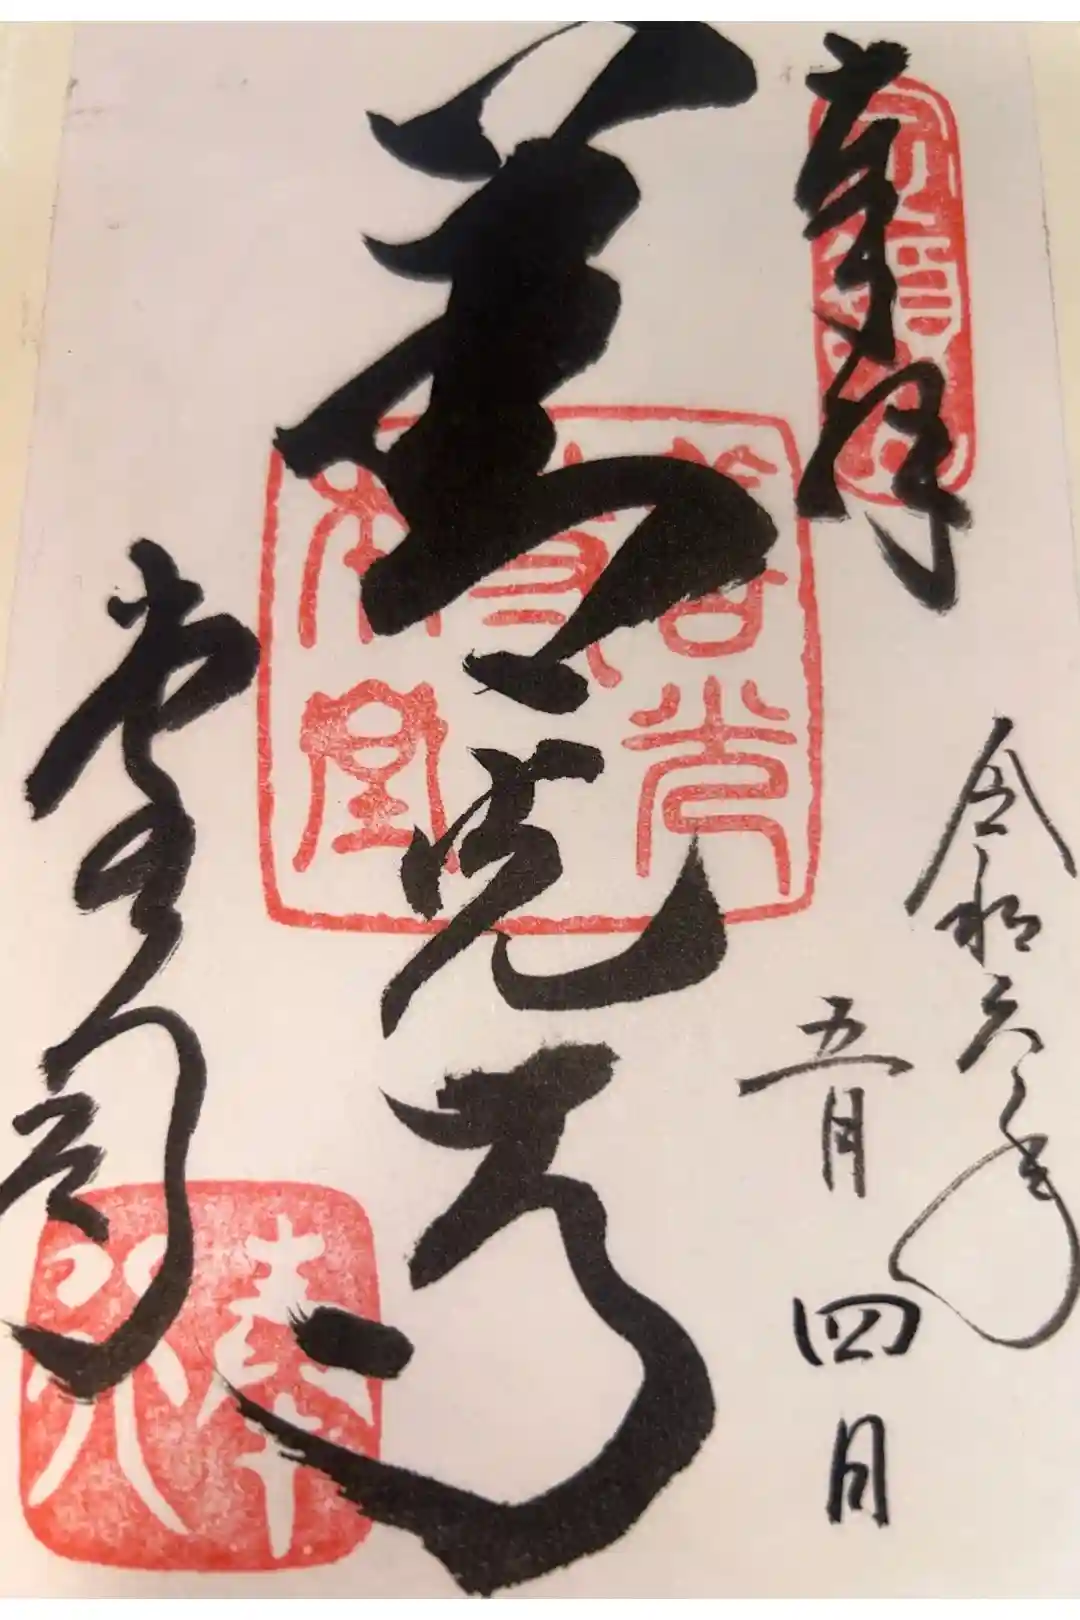 奉拝
令和六年
五月四日
善光寺
堂司
善光
寺
本堂
奉